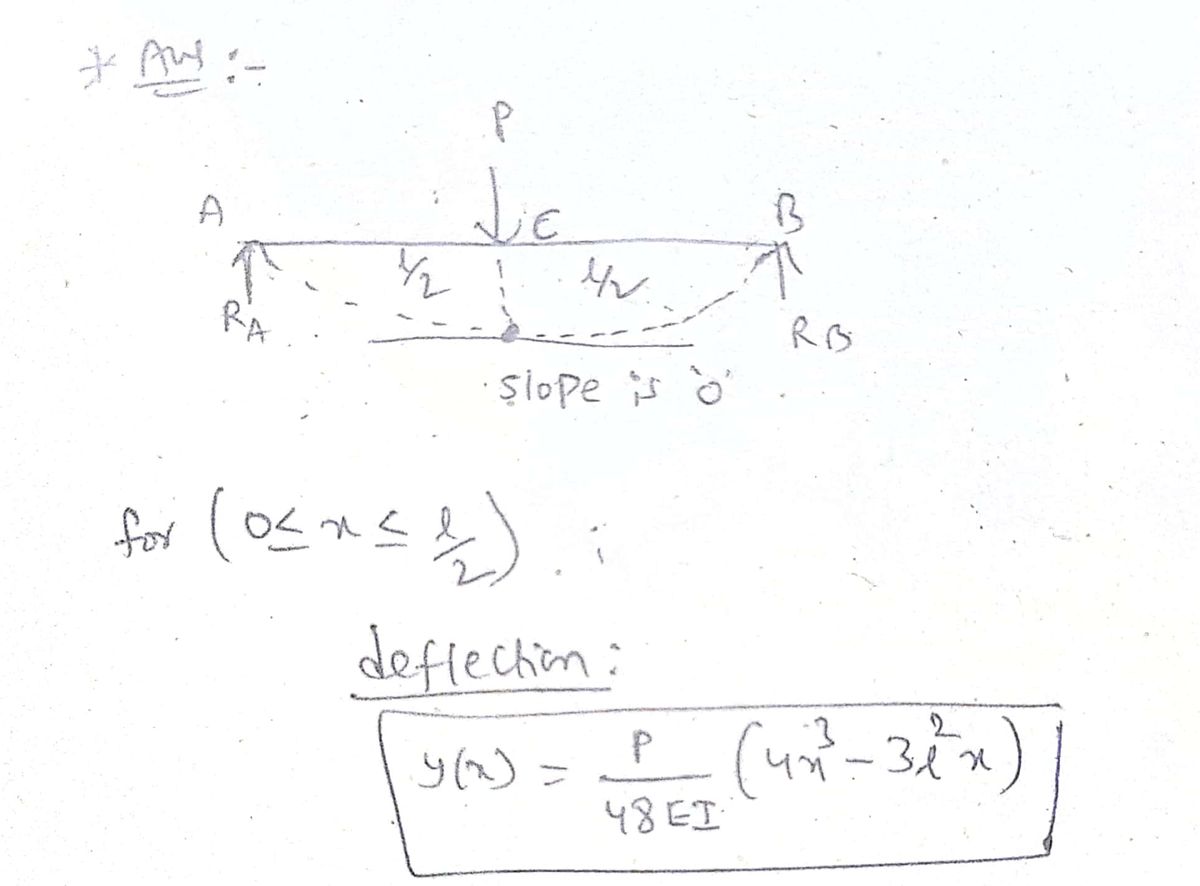 * Ans :-
P
A C B
l/2 l/2
RA RB
slope is 'o'
for (0 ≤ x ≤ l/2) ;
deflection :
y(x) = P/48EI (4x³ - 3l²x)